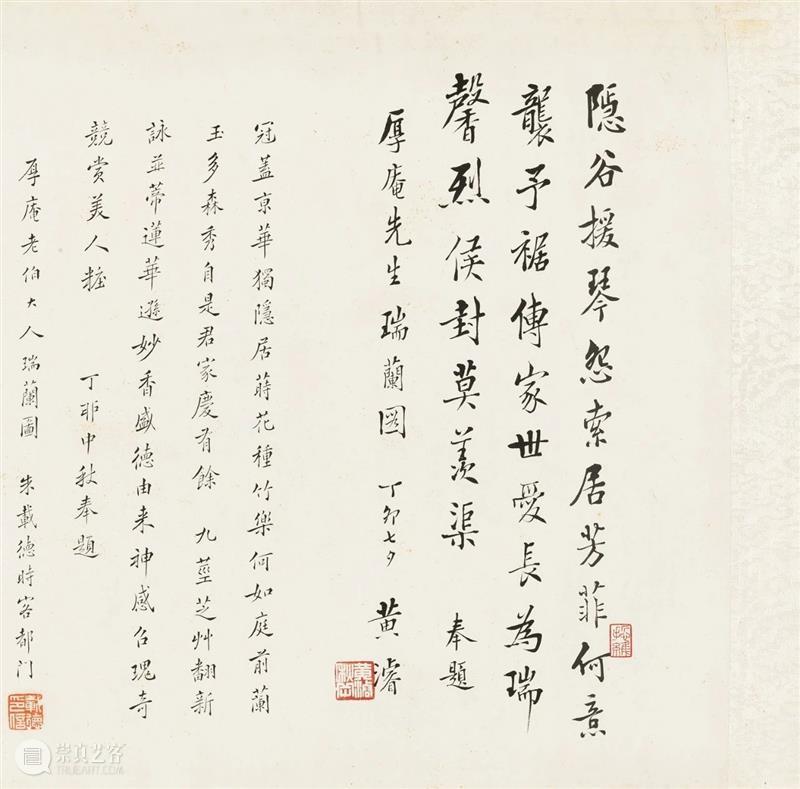 隱谷援琴怨索居芳菲何意
襲予裾傳家世愛長為瑞
馨烈侯封莫羨渠 奉題
厚庵先生瑞蘭圖 丁卯七夕 黄濬
冠蓋京華獨隱居蒔花種竹樂何如庭前蘭
玉多森秀自是君家慶有餘 九莖芝艸翻新
詠並蒂蓮華遜妙香盛德由来神感召瑰奇
競賞美人粧 丁卯中秋奉題
厚庵老伯大人瑞蘭圖 朱載德時客都門
崇真艺客